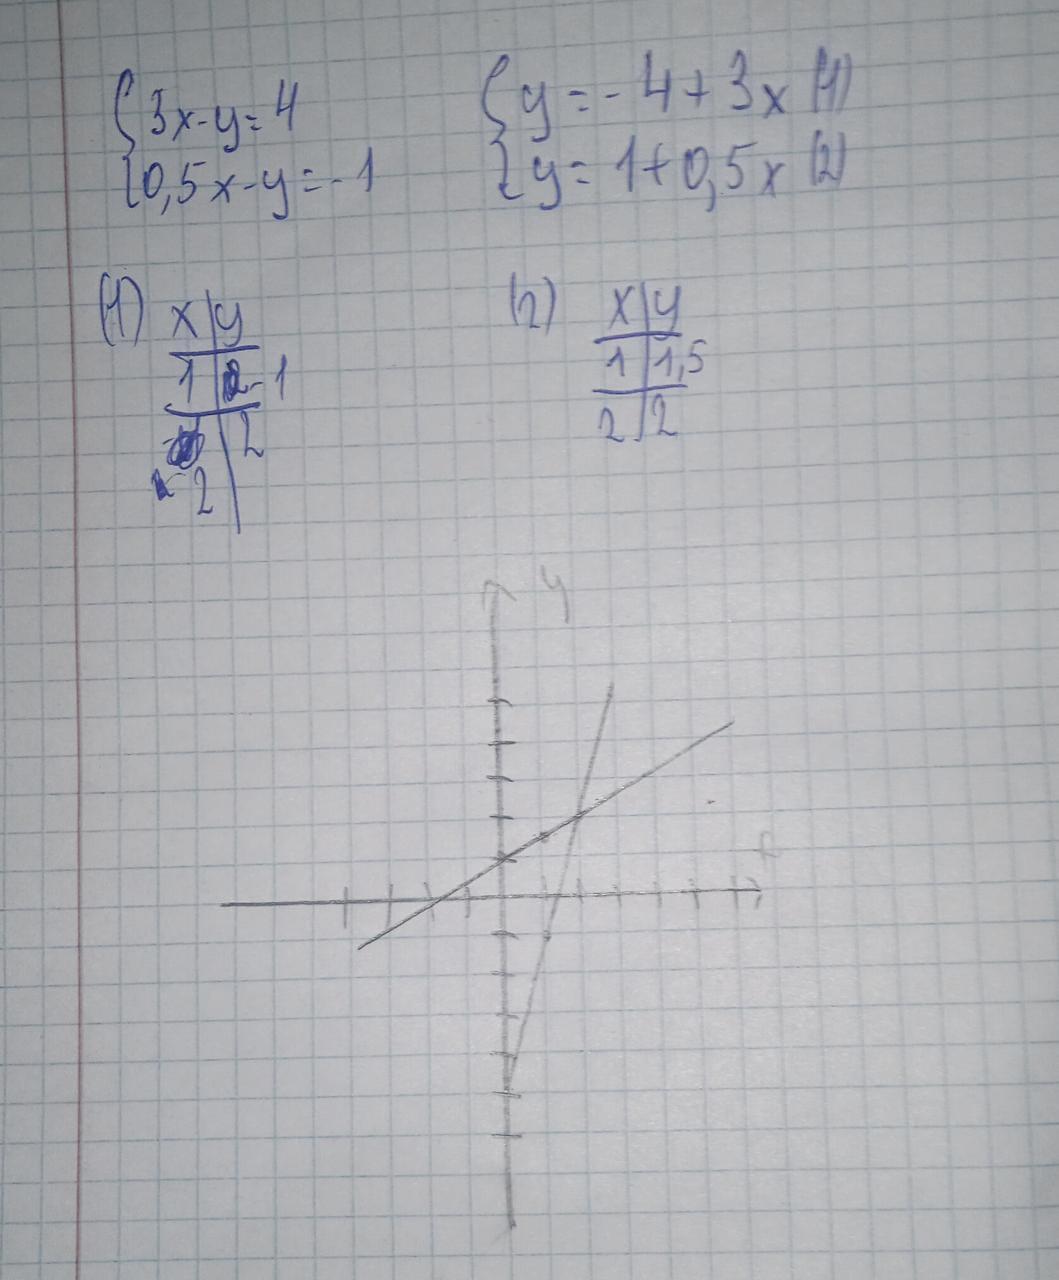 {3x-y=4
{0,5x-y=-1
{y=-4+3x (1)
{y=1+0,5x (2)
(1) x|y
1|-1
2|2
(2) x|y
1|1,5
2|2
y
x